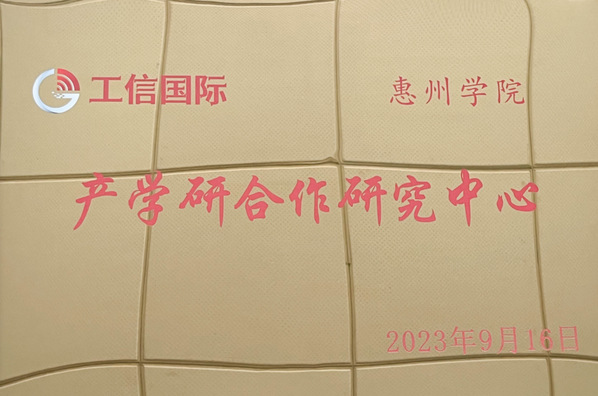 工信国际 惠州学院
产学研合作研究中心
2023年9月16日